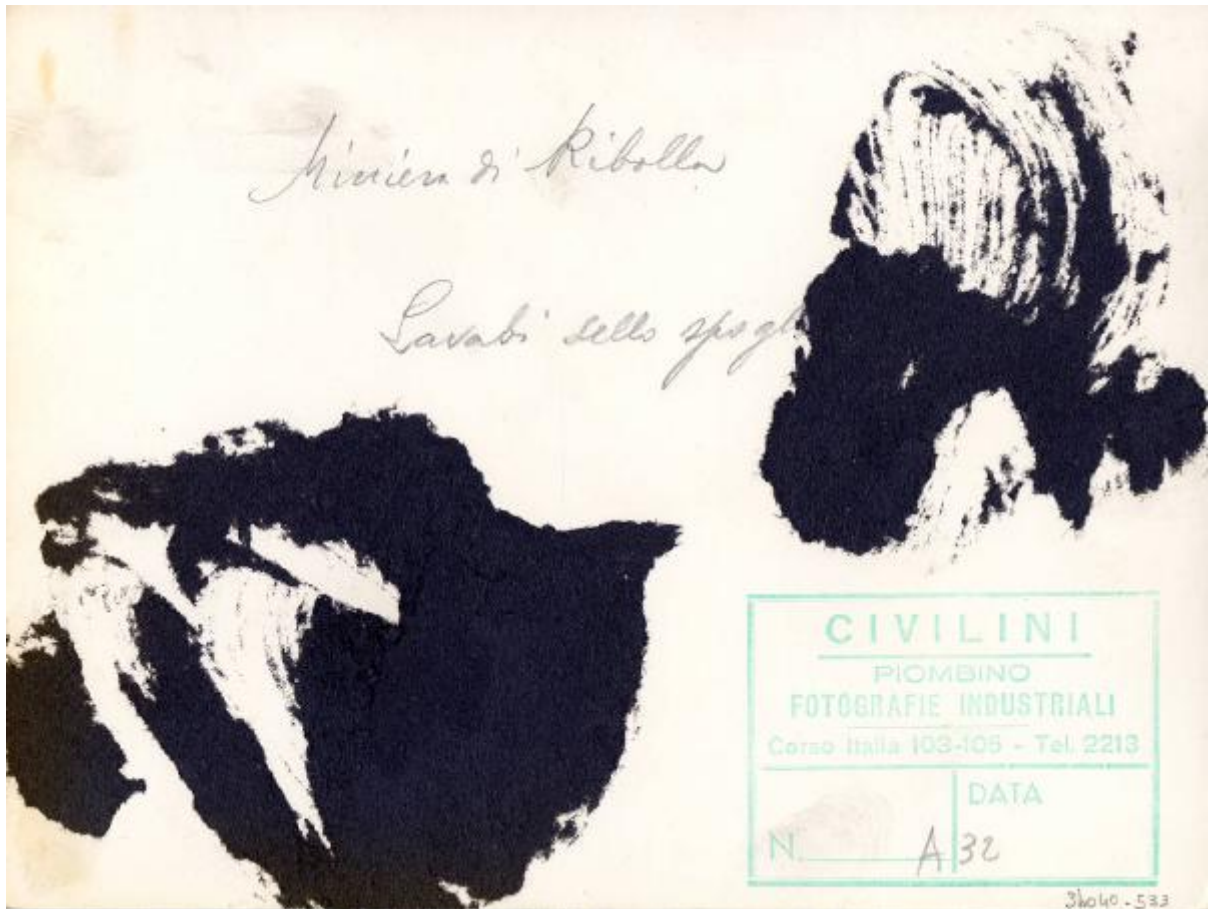 Miniera di Ribolla
Lavabi dello spogl
CIVILINI
PIOMBINO
FOTOGRAFIE INDUSTRIALI
Corso Italia 103-105 - Tel. 2213
DATA
N. A 32
34040-533